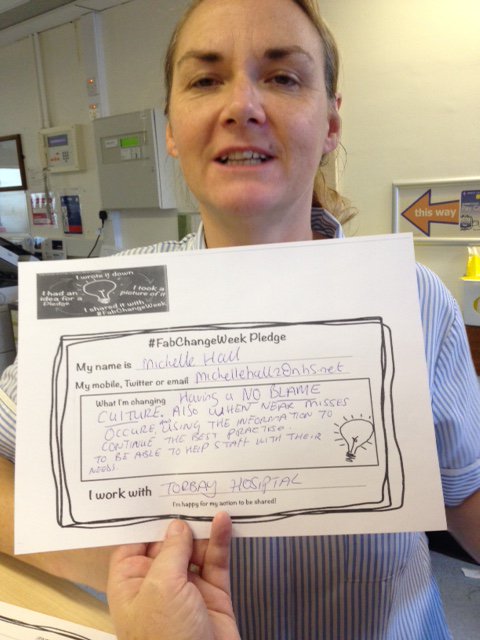 this way
I wrote it down
I had an idea for a Pledge
I took a picture of it
I shared it with #FabChangeWeek
#FabChangeWeek Pledge
My name is Michelle Hall
My mobile, Twitter or email Michellehall2@nhs.net
What I'm changing Having a NO BLAME
CULTURE. ALSO WHEN NEAR MISSES
OCCURE and USING THE INFORMATION TO
CONTINUE THE BEST PRACTISE.
TO BE ABLE TO HELP STAFF WITH THEIR
NEEDS.
I work with TORBAY HOSIPTAL
I'm happy for my action to be shared!